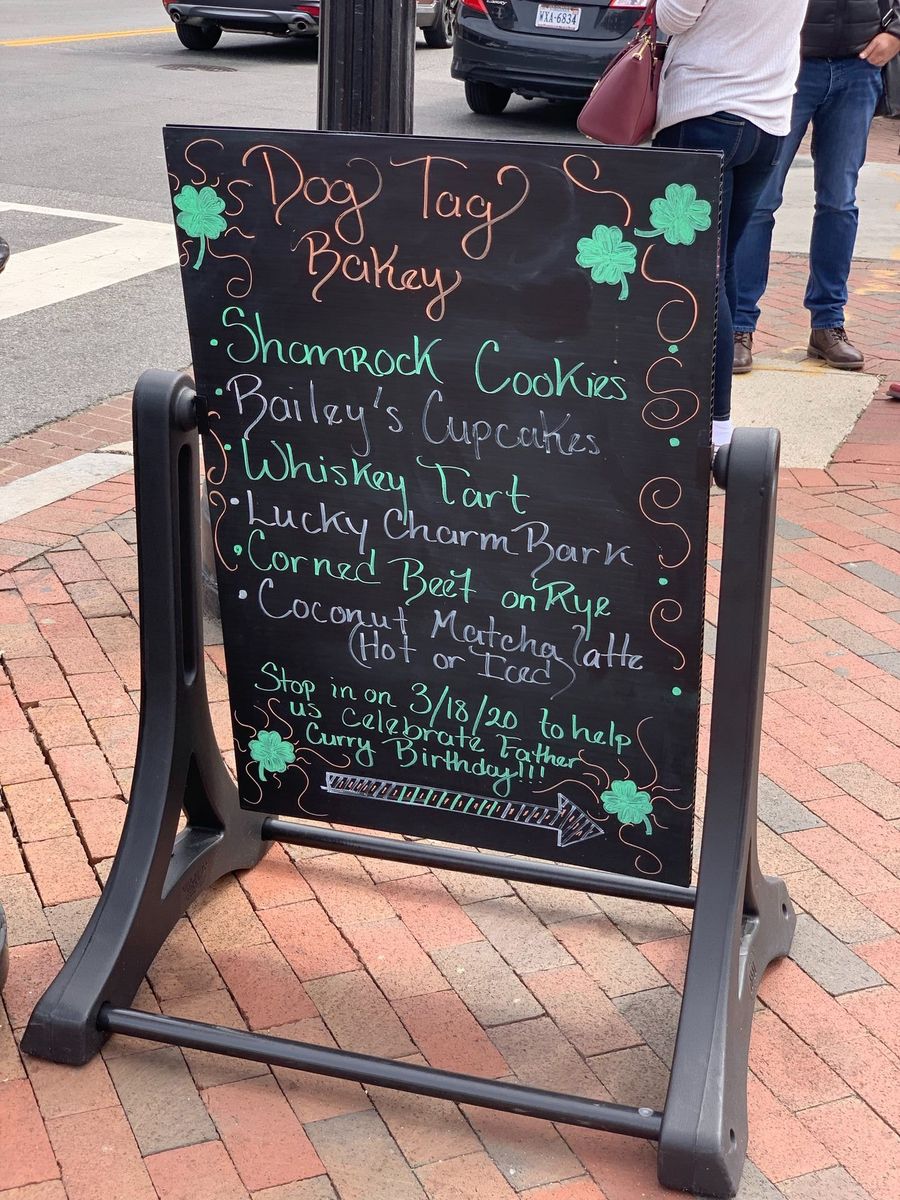 WXA-6834
Dog Tag
Bakey
· Shamrock Cookies
· Bailey's Cupcakes
· Whiskey Tart
· Lucky Charm Bark
· Corned Beef on Rye
· Coconut Matcha latte
(Hot or Iced)
Stop in on 3/18/20 to help
us Celebrate Father
Curry Birthday!!!